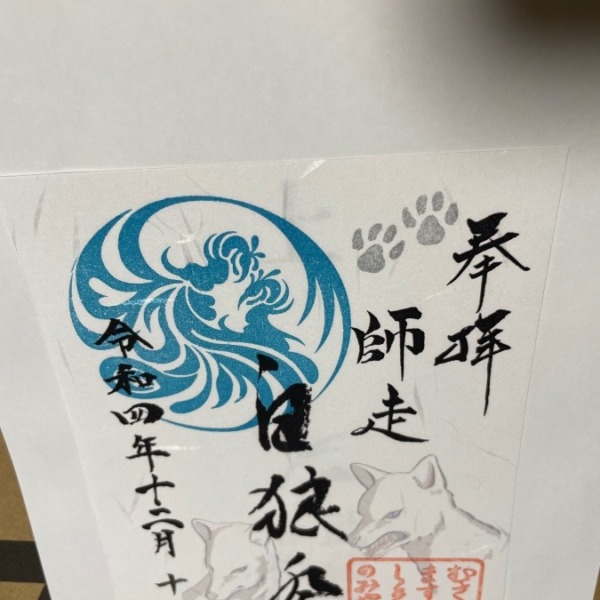 奉拝
師走
白狼
令和四年十二月 十
むさ
ます
のみ